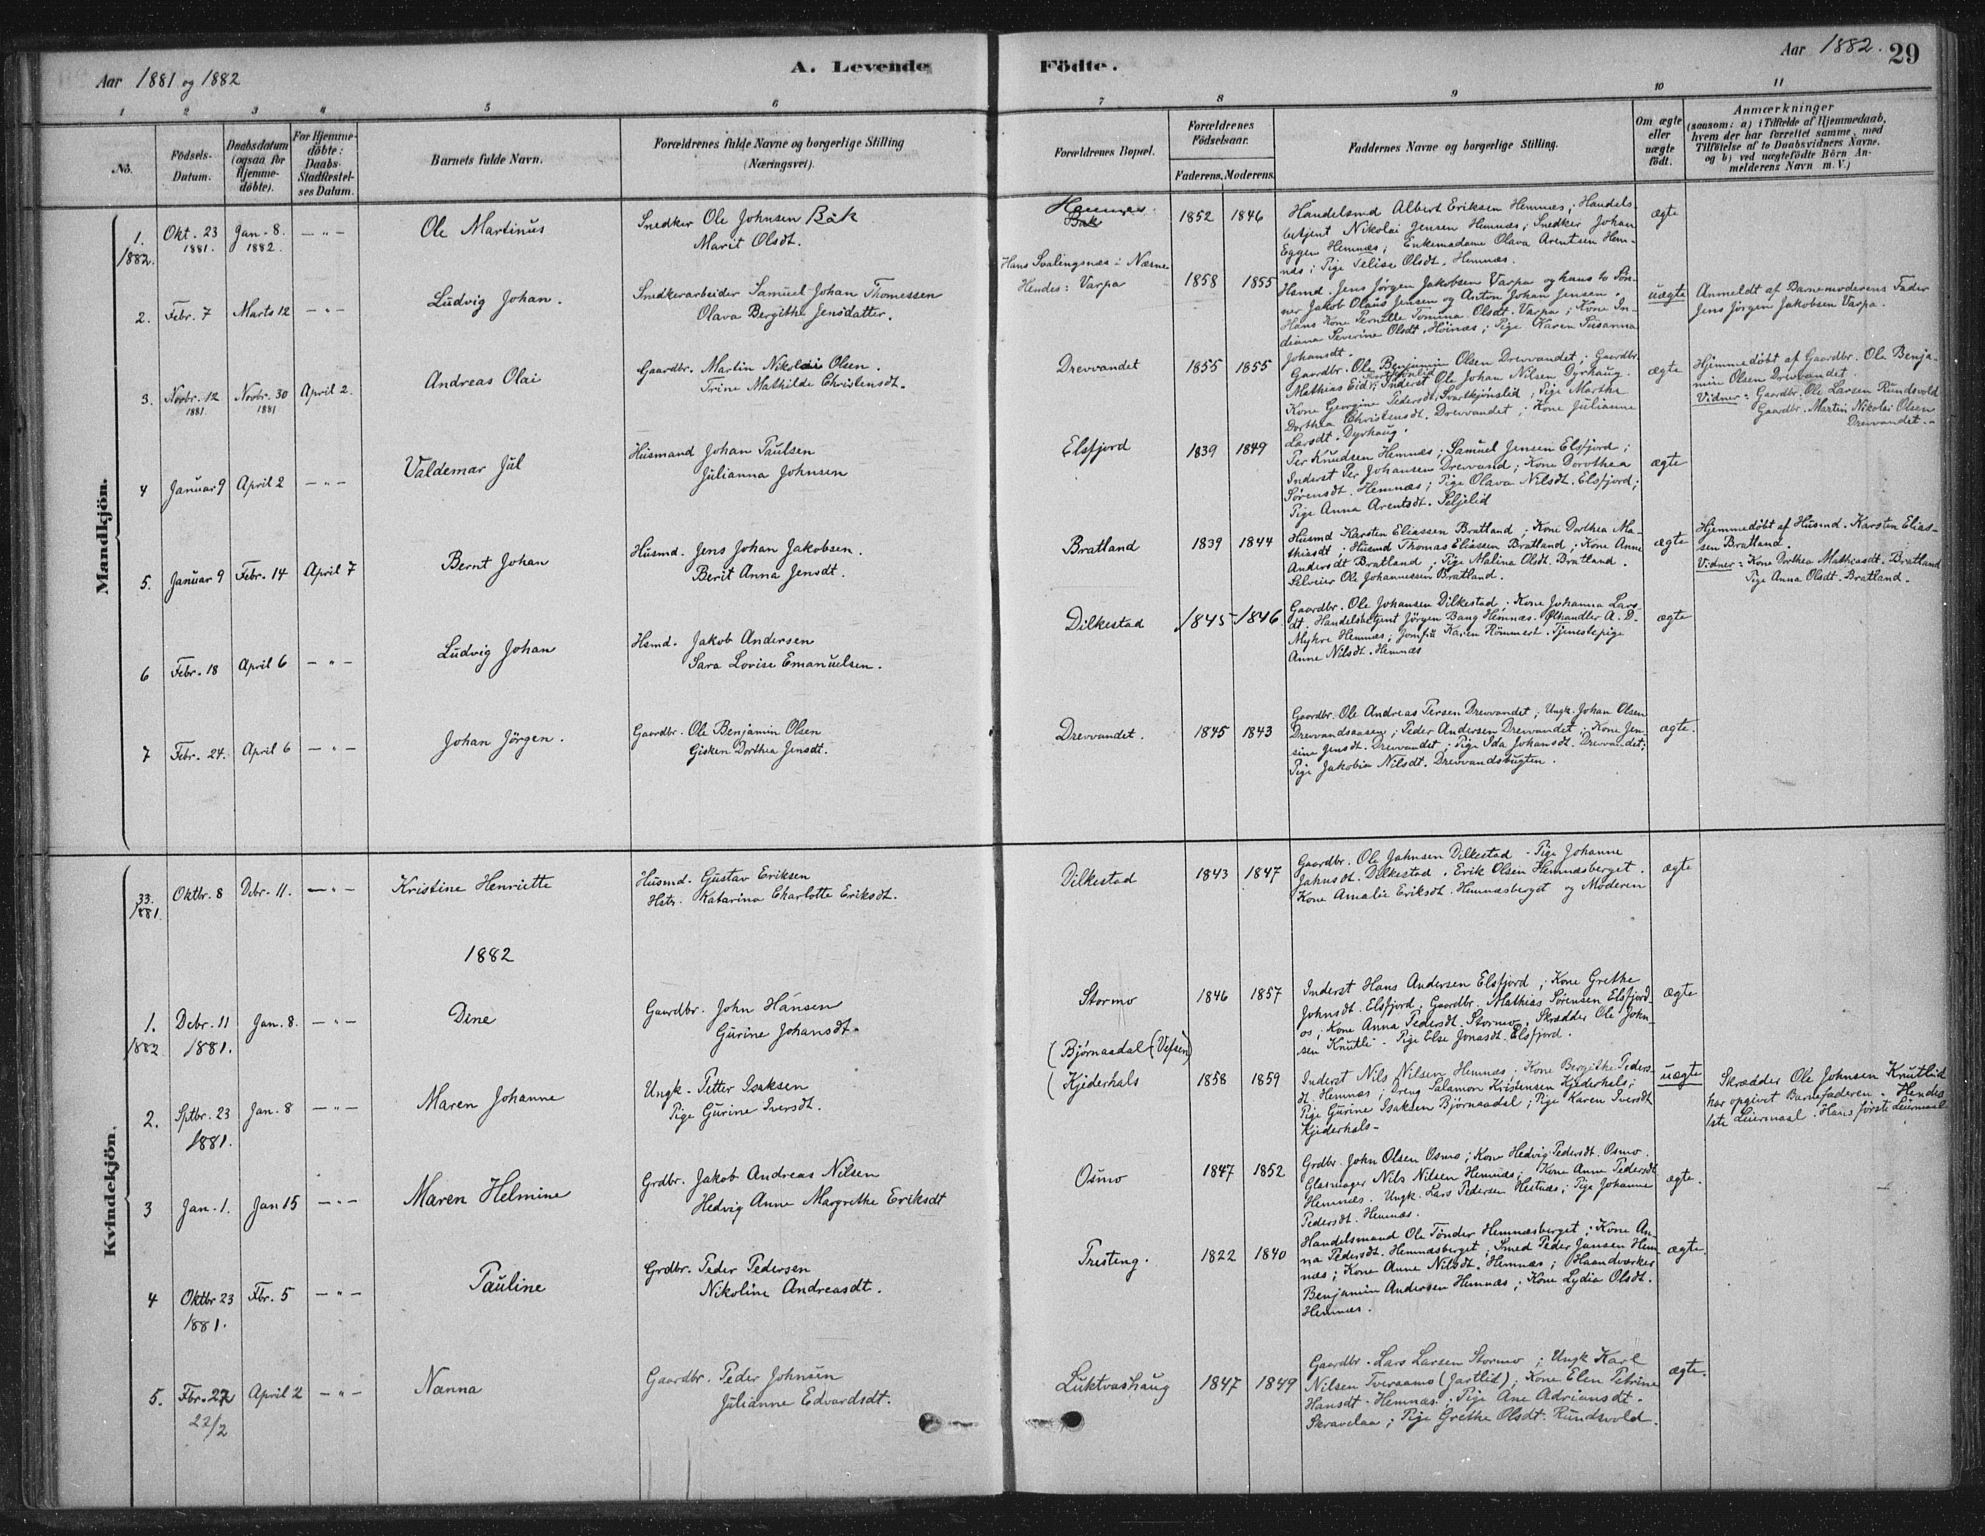 Aar 1881 og 1882
A. Levende
Födte.
Aar 1882.
29
1 2 3 4 5 6 7 8 9 10 11
No.
Födsels-
Datum.
Daabsdatum
(ogsaa for
Hjemme-
döbte).
For Hjemme-
döbte:
Daabs-
Stadfæstel-
ses Datum.
Barnets fulde Navn.
Forældrenes fulde Navne og borgerlige Stilling
(Næringsvei).
Forældrenes Bopæl.
Forældrenes
Födselsaar.
Faderens. Moderens.
Faddernes Navne og borgerlige Stilling.
Om ægte
eller
uægte
födt.
Anmærkninger
(saasom: a) i Tilfælde af Hjemmedaab,
hvem der har forrettet samme, med
Tilföielse af to Daabsvidners Navne,
og b) ved uægtefödte Börn An-
melderens Navn m. V.)
Mandkjön.
1.
1882.
Okt. 23
1881.
Jan. 8.
1882.
— " —
Ole Martinus
Snedker Ole Johnsen Båk
Marit Olsdt.
Hemnes.
Bak
1852 1846
Handelsmd Albert Eriksen Hemnæs; Handels-
betjent Nikolai Jensen Hemnæs; Snedker Johan
Eggen Hemnæs; Enkemadame Olava Arentsen Hem-
næs; Pige Telise Olsdt. Hemnæs.
ægte
2. Febr. 7 Marts 12 — " —
Ludvig Johan.
Smedkerarbeider Samuel Johan Thomessen
Olava Bergithe Jensdatter.
Hans Svalingsnæs i Nærne
Hendes: Varpa
1858 1855
Husmd. Jens Jörgen Jakobsen Varpa og hans to Søn-
ner Jakob Olaus Jensen og Anton Johan Jensen.
Hans Kone Pernille Tomina Olsdt. Varpa; Kone In-
diana Severine Olsdt. Høinæs; Pige Karen Susanna
Johansdt.
uægte
Anmeldt af Barnemoderens Fader
Jens Jörgen Jakobsen Varpa.
3. Novbr. 12
1881.
Novbr. 30
1881
April 2.
Andreas Olai
Gaardbr. Martin Nikolai Olsen.
Trine Mathilde Christensdt.
Drevvandet
1855 1855
Gaardbr. Ole Benjamin Olsen Drevvandet; Gaardbr.
Mathias Eid; Inderst Ole Johan Nilsen Dyrhaug.
Kone Georgine Pedersdt. Svartkjønslid; Pige Marthe
Dorthea Christensdt. Drevvandet; Kone Julianne
Larsdt. Dyrhaug.
ægte
Hjemmedøbt af Gaardbr. Ole Benja-
min Olsen Drevvandet.
Vidner: Gaardbr. Ole Larsen Rundsvold
Gaardbr. Martin Nikolai Olsen
Drevvandet.
4 Januar 9 April 2 — " —
Valdemar Jul
Husmand Johan Paulsen
Julianna Johnsen
Elsfjord
1839 1849
Per Knudsen Hemnæs; Samuel Jensen Elsfjord;
Inderst Per Johansen Drevvand; Kone Dorothea
Sørensdt. Hemnæs; Pige Olava Nilsdt. Elsfjord;
Pige Anna Arentsdt. Seljelid
ægte
5. Januar 9 Febr. 14 April 7
Bernt Johan
Husmd. Jens Johan Jakobsen.
Berit Anna Jensdt.
Bratland
1839 1844
Husmd Karsten Eliassen Bratland; Kone Dorthea Ma-
thiasdt; Husmd Thomas Eliassen Bratland; Kone Anne
Andersdt Bratland; Pige Malina Olsdt. Bratland.
Selveier Ole Johannessen Bratland.
ægte
Hjemmedøbt af Husmd. Karsten Elias-
sen Bratland.
Vidner: Kone Dorthea Mathiasdt. Bratland
Pige Anna Olsdt. Bratland.
6 Febr. 18 April 6 — " —
Ludvig Johan
Hsmd. Jakob Andersen
Sara Lovise Emanuelsen.
Dilkestad
1845 1846
Gaardbr. Ole Johansen Dilkestad; Kone Johanna Lars-
dt. Handelsbetjent Jørgen Bang Hemnæs. Ølhandler A. D.
Mykre Hemnæs; Jomfru Karen Römmest. Tjenestepige
Anne Nilsdt. Hemnæs
ægte
7 Febr. 24. April 6 — " —
Johan Jörgen.
Gaardbr. Ole Benjamin Olsen
Gisken Dorthea Jensdt.
Drevvandet.
1845 1843
Gaardbr. Ole Andreas Persen Drevvandet; Ungk. Johan Olsen
Drevvandsaasen; Peder Andersen Drevvandet; Kone Jen-
sine Jensdt. Drevvandet; Pige Ida Johansdt. Drevvandet;
Pige Jakobia Nilsdt. Drevvandsbugten.
ægte.
Kvindekjön.
33.
1881.
Oktbr. 8 Dcbr. 11. — " —
Kristine Henriette
Husmd. Gustav Eriksen
Hstr. Katarina Charlotte Eriksdt.
Dilkestad
1843 1847
Gaardbr. Ole Jahnsen Dilkestad - Pige Johanne
Jahnsdt. Dilkestad. Erik Olsen Hemnæsberget.
Kone Amalie Eriksdt. Hemnæsberget og Moderen
ægte
1882
1.
1882
Dcbr. 11
1881.
Jan. 8. — " —
Dine
Gaardbr. John Hansen
Gurine Johansdt.
Stormo
1846 1857
Inderst Hans Andersen Elsfjord; Kone Grethe
Johnsdt. Elsfjord. Gaardbr. Mathias Sørensen Elsfjord
os; Kone Anna Pedersdt. Stormo; Skrædder Ole John-
sen Knutli - Pige Else Jonasdt. Elsfjord.
ægte
2. Sptbr. 23
1881.
Jan. 8 — " —
Maren Johanne
Ungk. Petter Isaksen
Pige Gurine Iversdt.
(Bjørnaadal (Vefsen)
(Kjederhals
1858 1859
Inderst Nils Nilsen Hemnæs; Kone Bergithe Peders-
dt. Hemnæs; Dreng Salamon Kristensen Kjederhals;
Pige Gurine Isaksen Bjørnaadal; Pige Karen Iversdt
Kjederhals-
uægte
Skrædder Ole Johnsen Knutlid
har opgivet Barnefaderen. Hendes
1ste Leiermaal. Hans første Leiermaal
3 Jan. 1. Jan 15 — " —
Maren Helmine
Grdbr. Jakob Andreas Nilsen
Hedvig Anne Margrethe Eriksdt
Osmo
1847 1852
Grdbr. John Olsen Osmo; Kone Hedvig Pedersdt. Osmo.
Glasmager Nils Nilsen Hemnæs; Kone Anne Pedersdt
Hemnæs. Ungk. Lars Pedersen Hestnæs; Pige Johanne
Pedersdt. Hemnæs.
ægte.
4 Oktbr 23
1881.
Fbr. 5 — " —
Pauline
Grdbr. Peder Pedersen
Nikoline Andreasdt.
Tristeng.
1822 1840
Handelsmand Ole Tönder Hemnæsberget; Kone An-
na Pedersdt. Hemnæsberget; Smed Peder Jansen Hem-
næs; Kone Anne Nilsdt. Hemnæs; Haandverker
Benjamin Andersen Hemnæs; Kone Lydia Olsdt.
Hemnæs.
ægte.
5. Fbr. 22
22/2
April 2 — " —
Nanna
Gaardbr. Peder Johnsen
Julianne Edvardsdt.
Luktvashaug
1847 1849
Gaardbr. Lars Larsen Stormo; Ungk Karl
Nilsen Tveraamo (Jartlid); Kone Elen Petrine
Hansdt. Hemnæs; Pige Ane Adriansdt.
Skravelaa; Pige Grethe Olsdt. Rundsvold.
ægte.